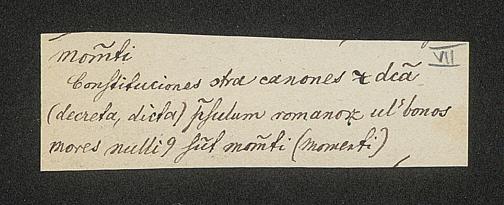 mom̃ti VII
Constituciones ɔtra canones ⁊ dcã
(decreta, dicta) p̃sulum romanoꝝ ul' bonos
mores nulli9 sũt mom̃ti (momenti)